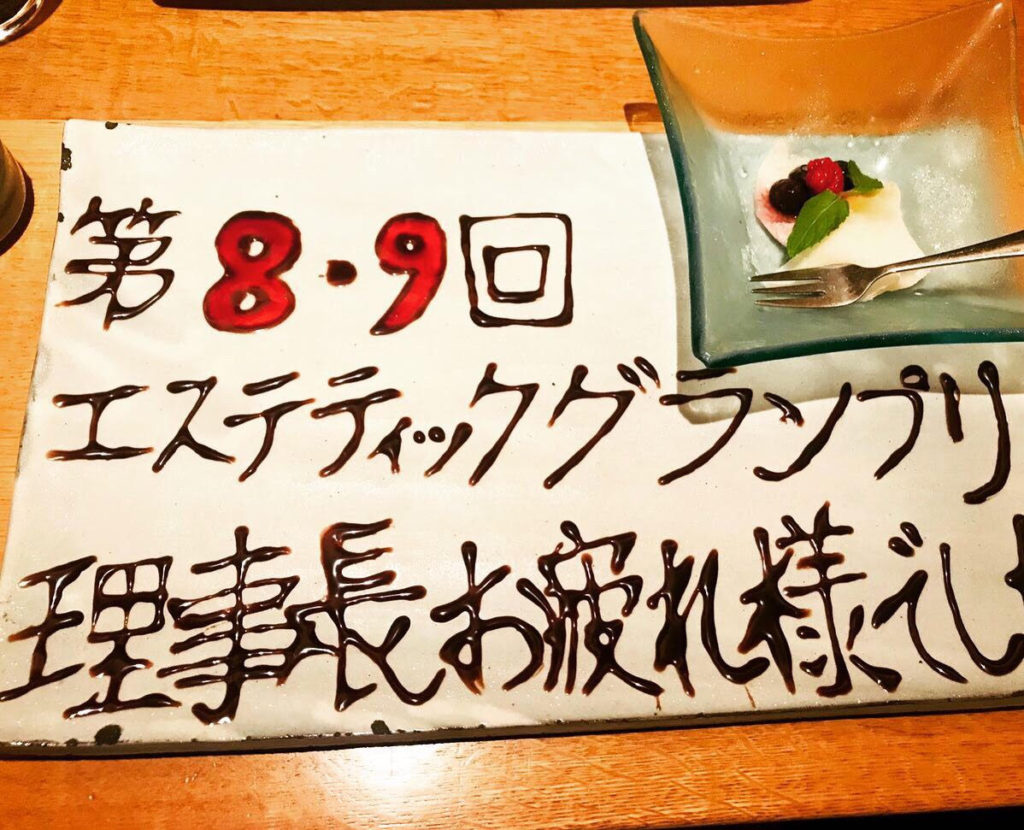 第8・9回
エスティックグランプリ
理事長お疲れ様でし